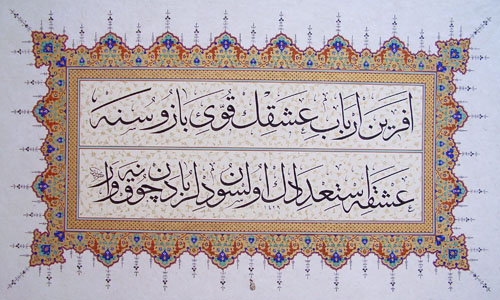 آفرين ارباب عشقك قوّى بازوسنه
عشقه استعدادك اولسون دلربادن چوق نه وار